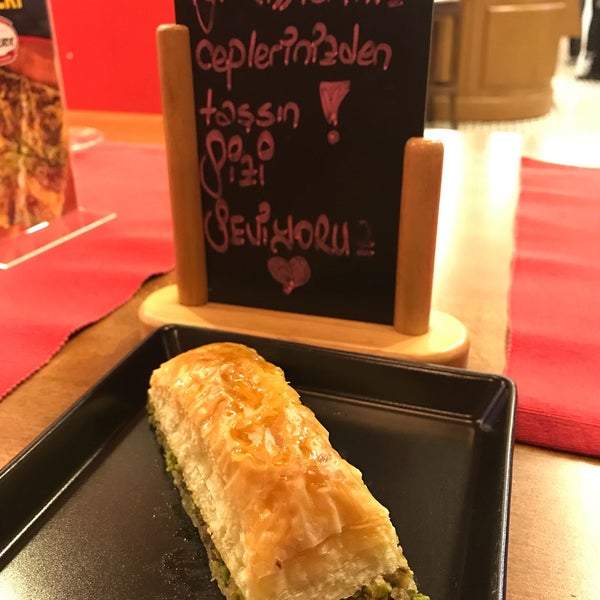 ceplerinizden
taşsın !
Sizi
SEViYORUZ